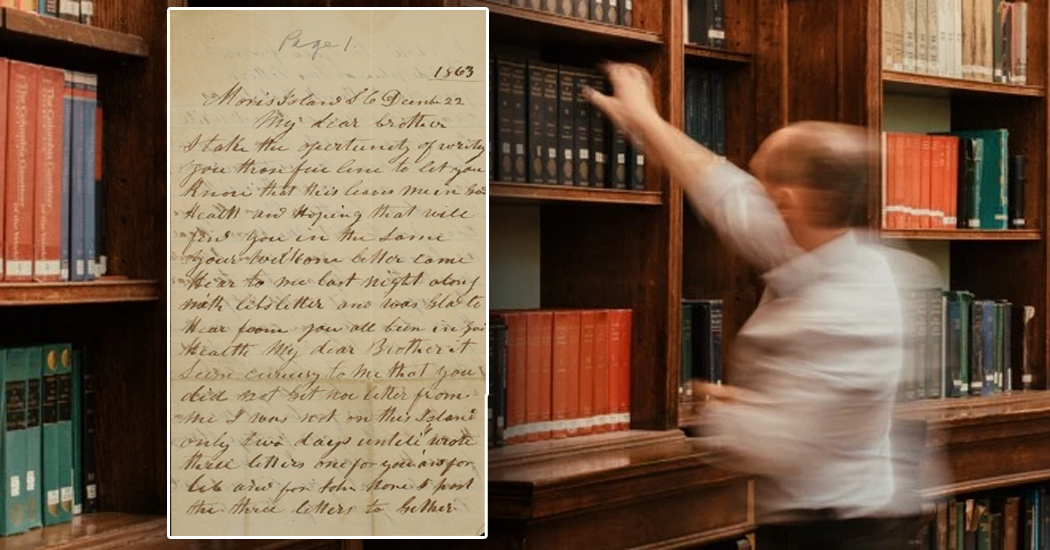 The Columbia Gazetteer of the World
The Columbia Gazetteer of the World
Page 1
1863
Moris Island S C Decmbr 22
My dear brother
I take the opertunity of writing
you those few line to let you
Know that this leaves me in
Health and Hoping that will
find you in the same
your welkome letter came
Hear to me last night along
with libs letter and was Glad to
Hear from you all been in
Health My dear Brother it
Seem to me that you
did not Git no letter from
me I was not on this Island
only two days untill I wrote
three letters one for you and for
Lib and for John None I post
the three letters to Gether